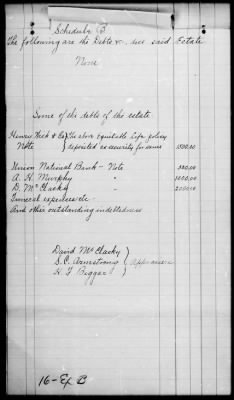 Schedule B
The following are the Debts &c, due said Estate
None
Some of the debts of the estate
Henry Heck & Co } The above equitable Life policy
Note } deposited as security for same 1500.00
Union National Bank - Note 500.00
A. H. Murphy " 1000.00
D. McClasky " 2000.00
Funeral expenses etc.
And other outstanding indebtedness
David McClasky }
S. C. Armstrong } Appraisers
H. F. Bigger }
16 - Ex B